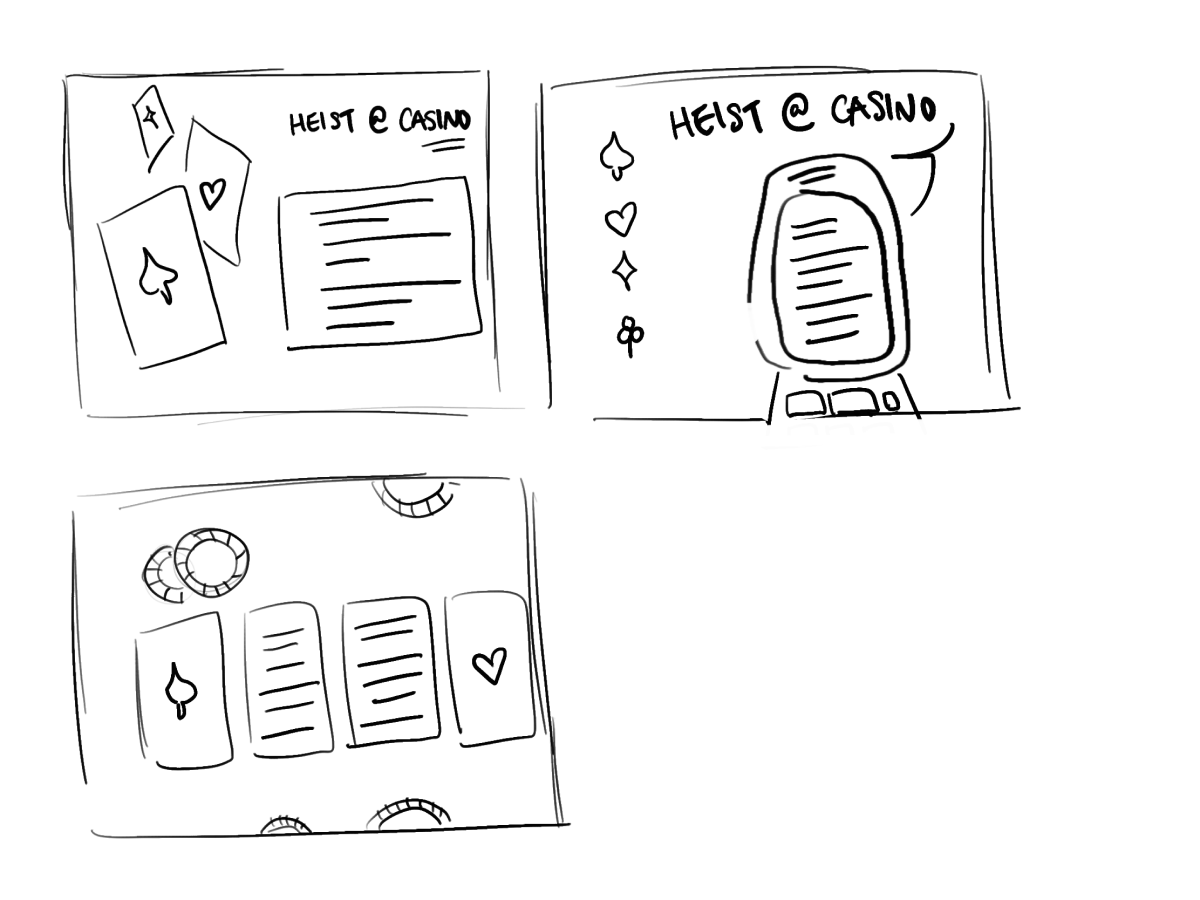 HEIST @ CASINO
HEIST @ CASINO